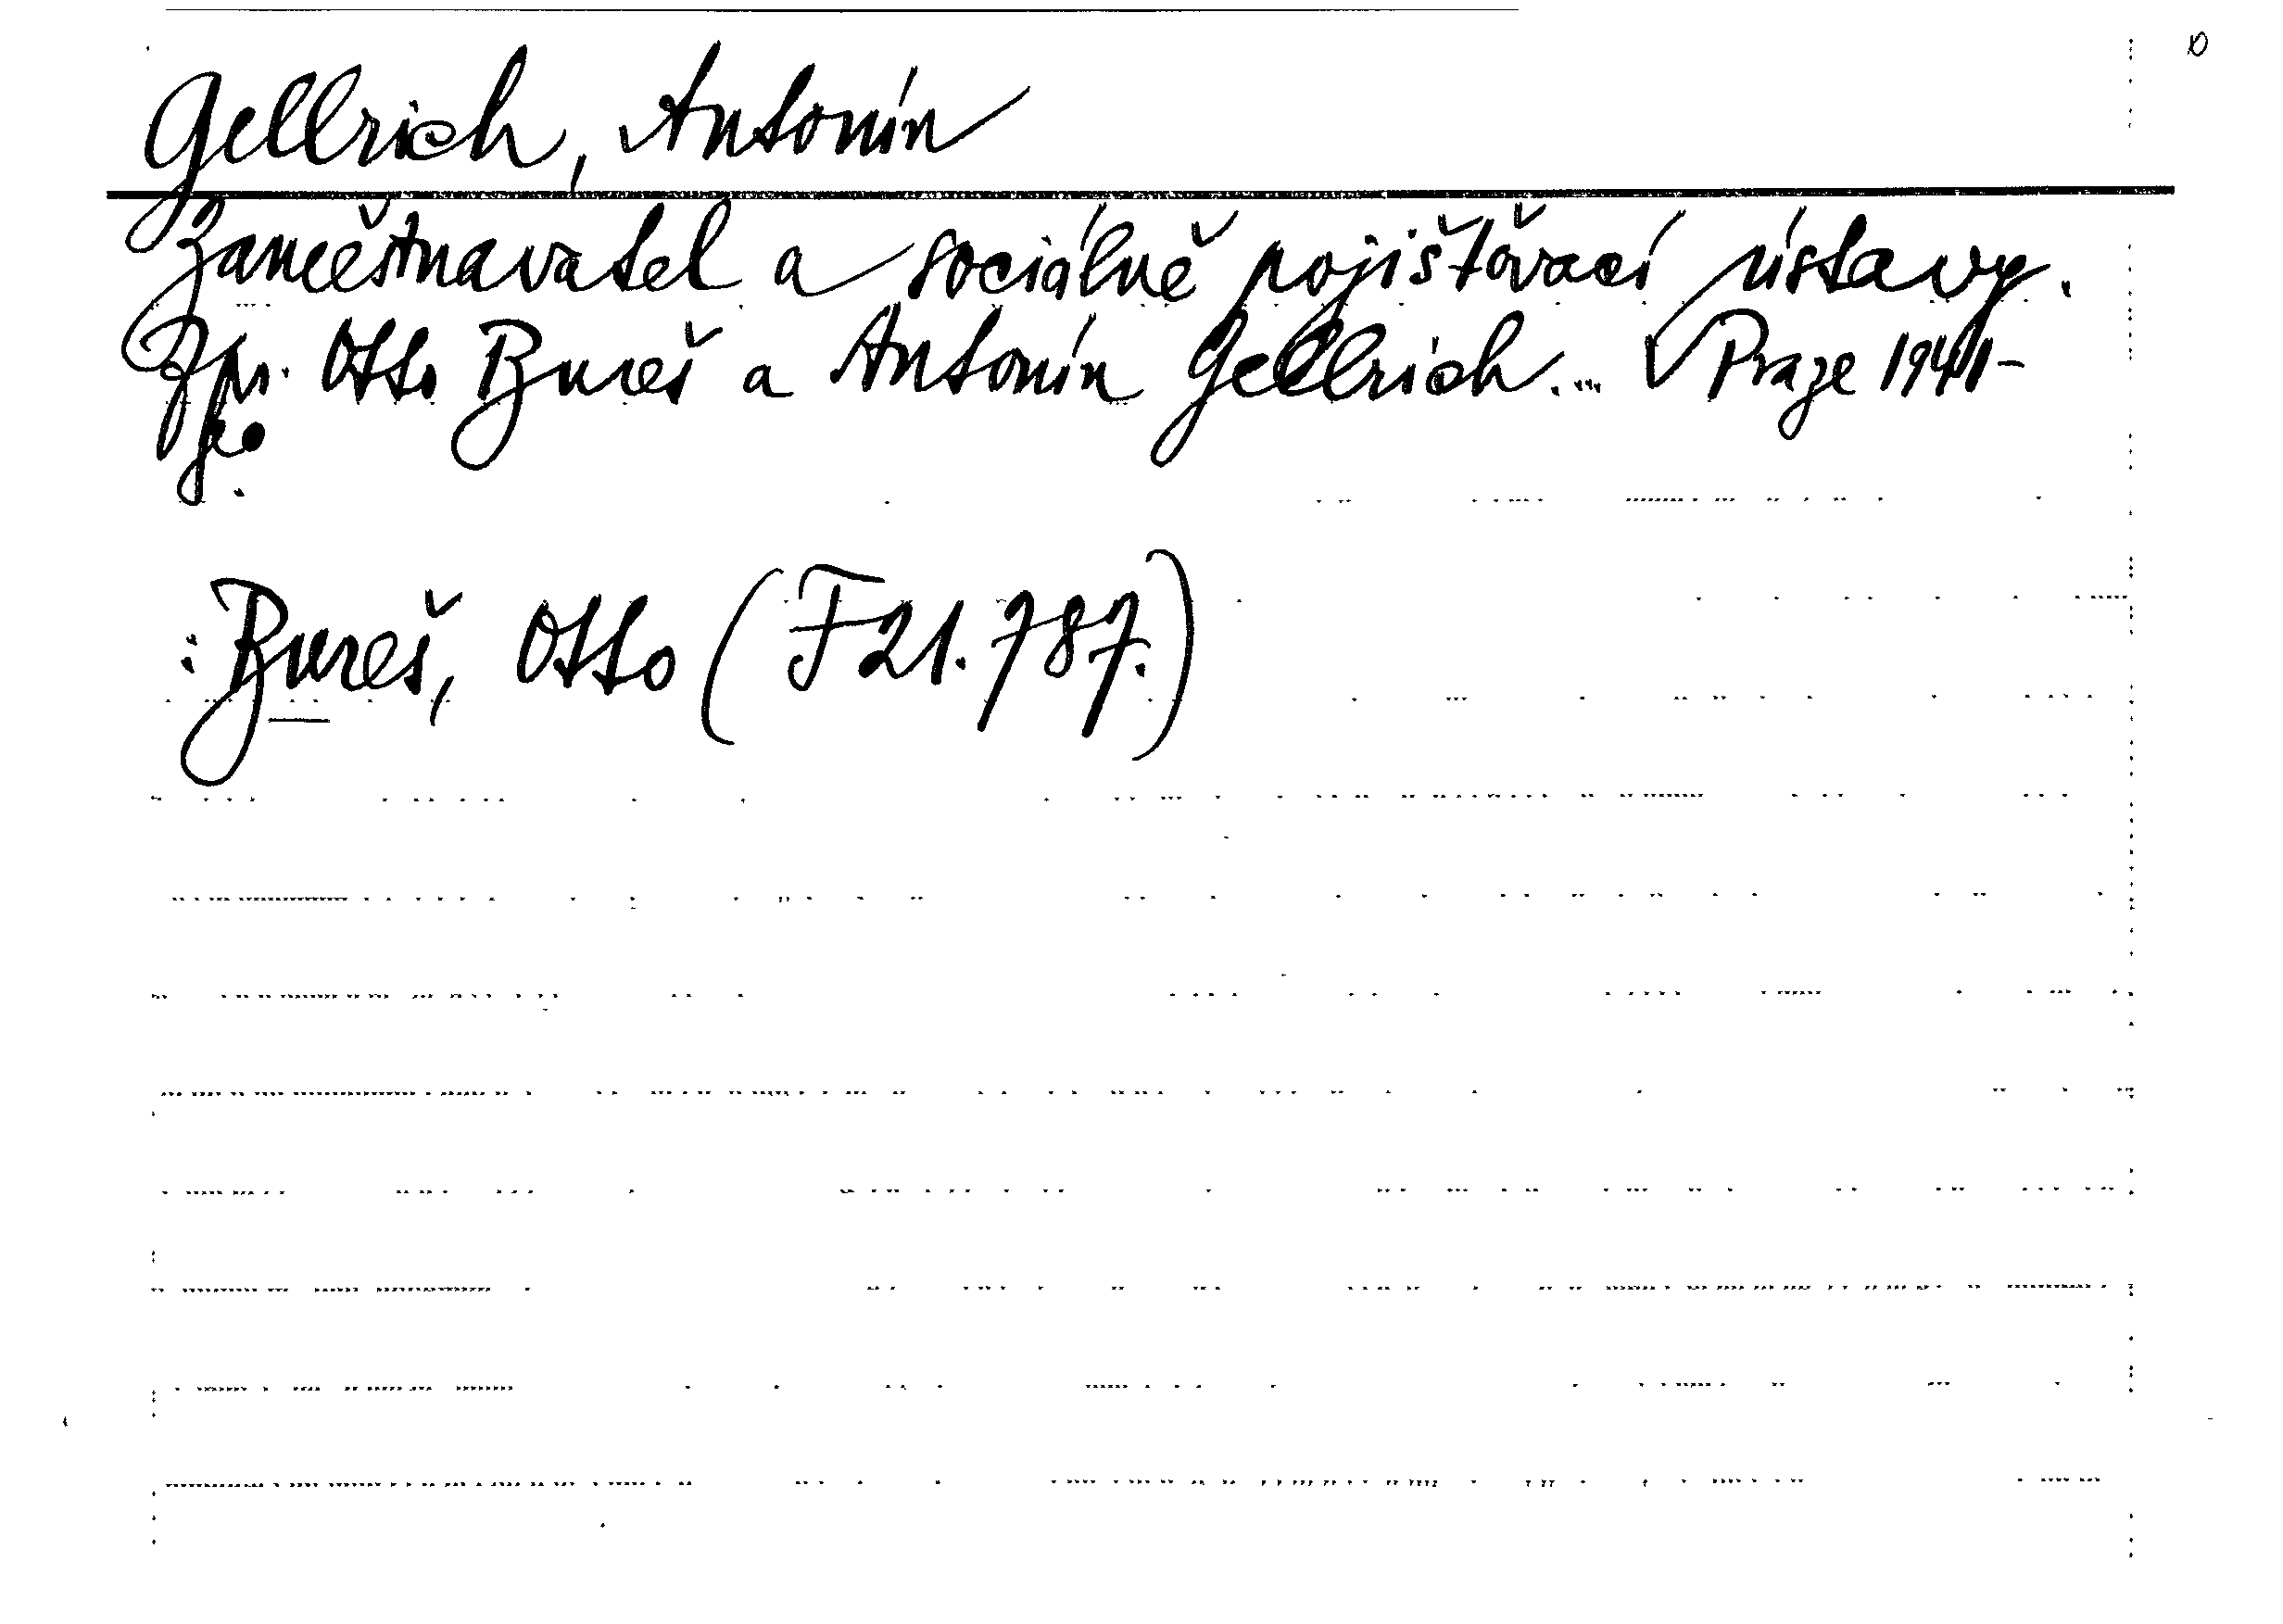 Gellrich, Antonín
Zaměstnavatel a sociálně pojišťovací ústavy.
Zpr. Otto Bureš a Antonín Gellrich.... V Praze 1941-
: Bureš, Otto (F21.787.)